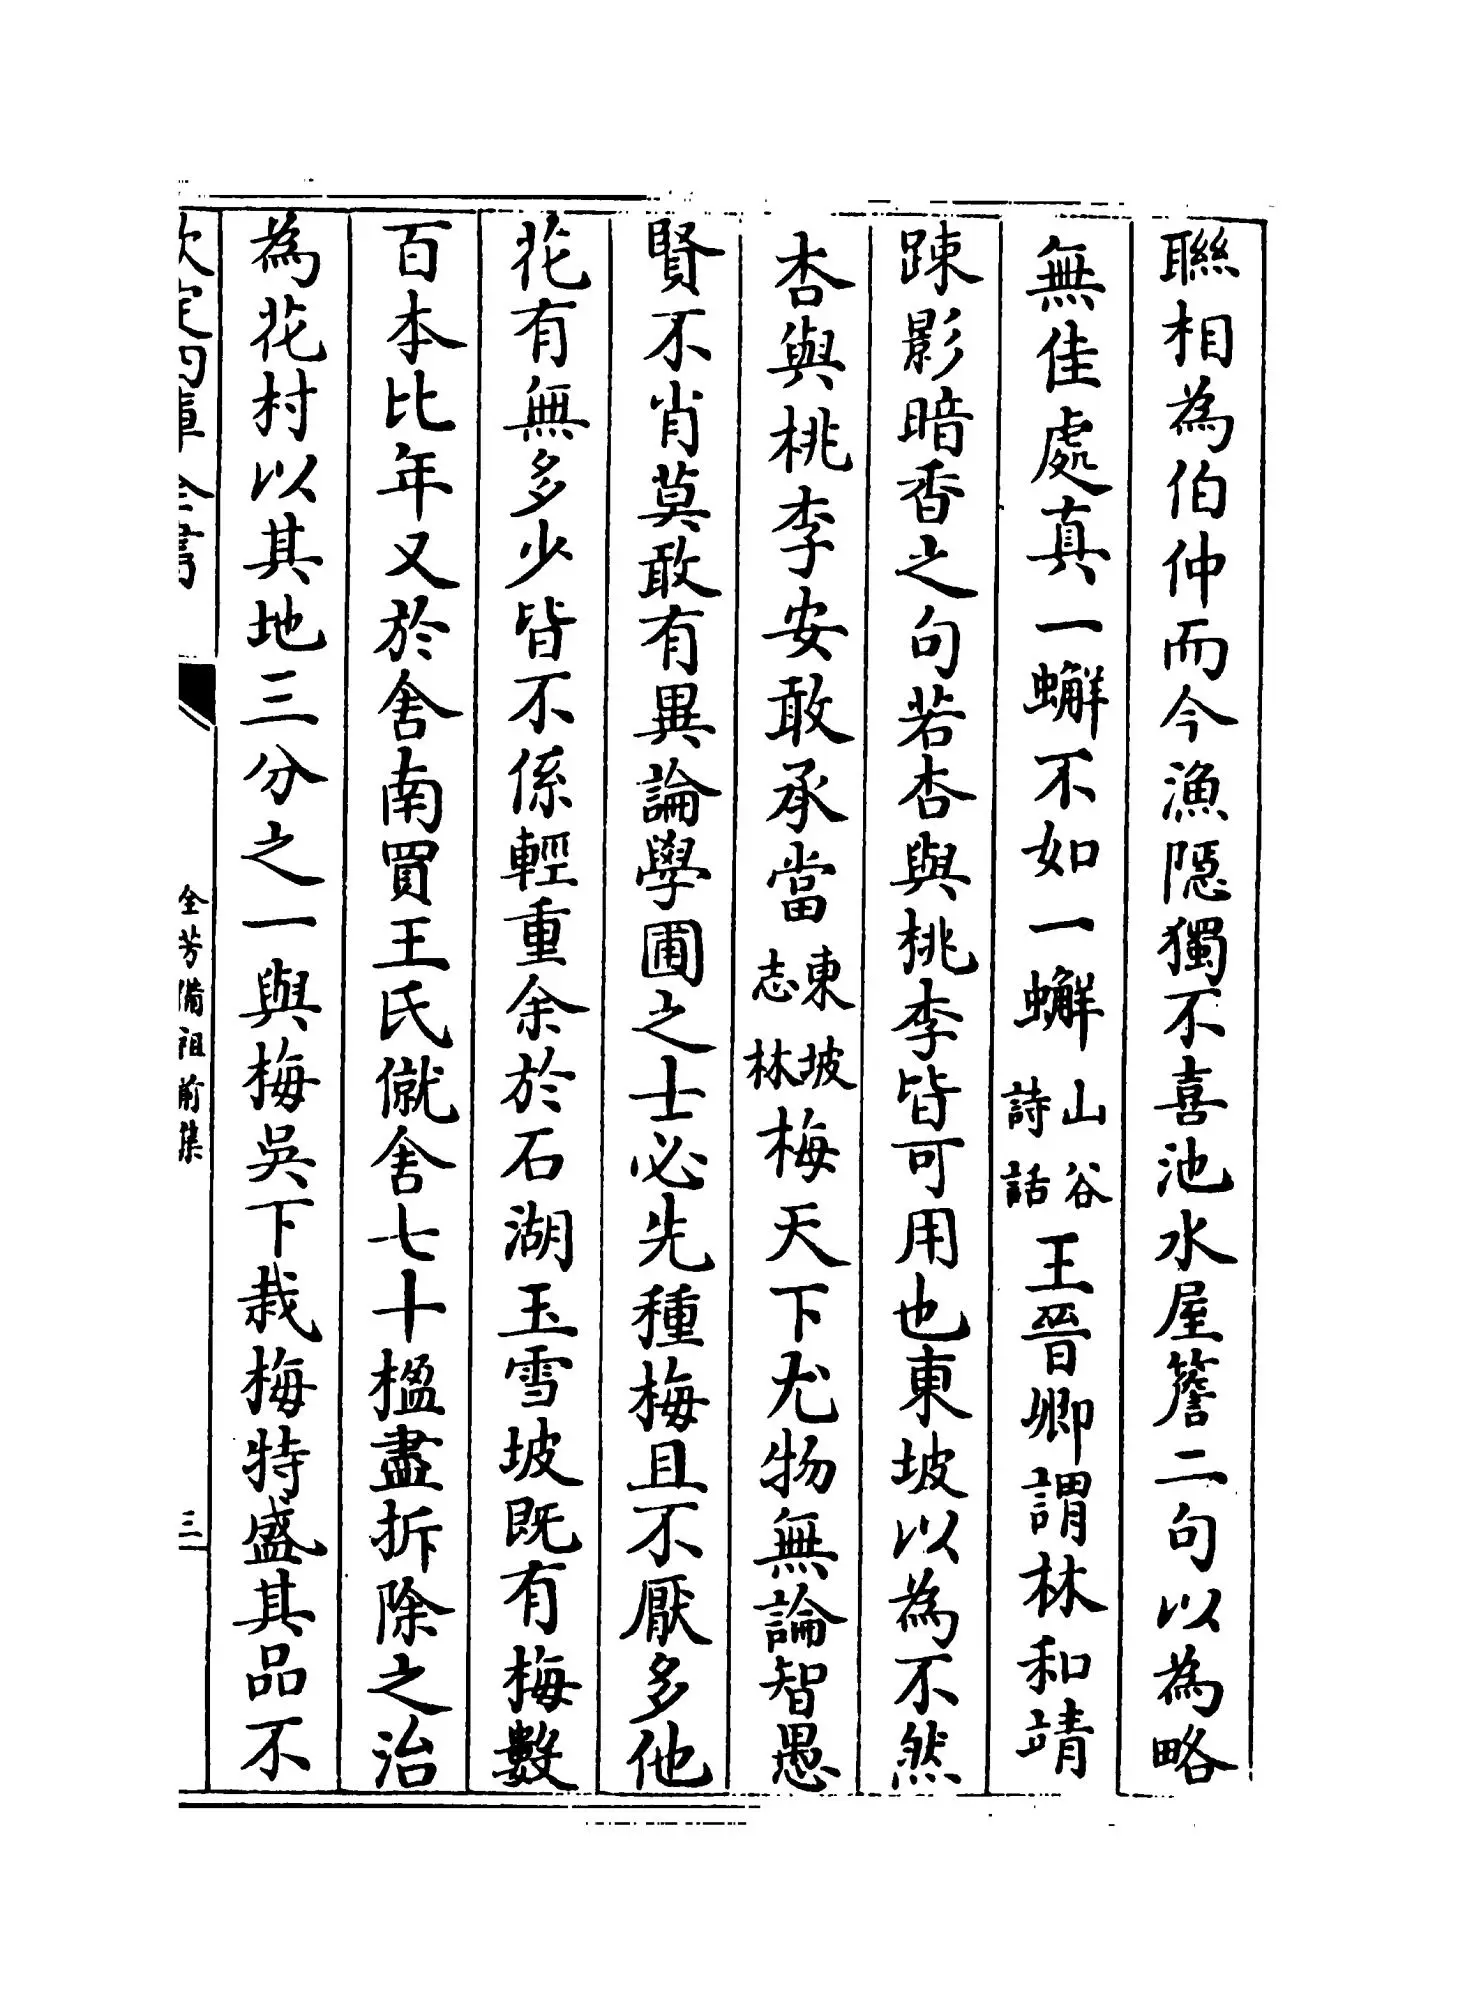 聯相為伯仲而今漁隠獨不喜池水屋簷二句以為略
無佳處真一蠏不如一蠏山谷詩話王晉卿謂林和靖
踈影暗香之句若杏與桃李皆可用也東坡以為不然
杏與桃李安敢承當東坡志林梅天下尤物無論智愚
賢不肖莫敢有異論學圃之士必先種梅且不厭多他
花有無多少皆不係輕重余於石湖玉雪坡既有梅數
百本比年又於舍南買王氏僦舍七十楹盡拆除之治
為花村以其地三分之一與梅吳下栽梅特盛其品不
欽定四庫全書 全芳備祖前集 三